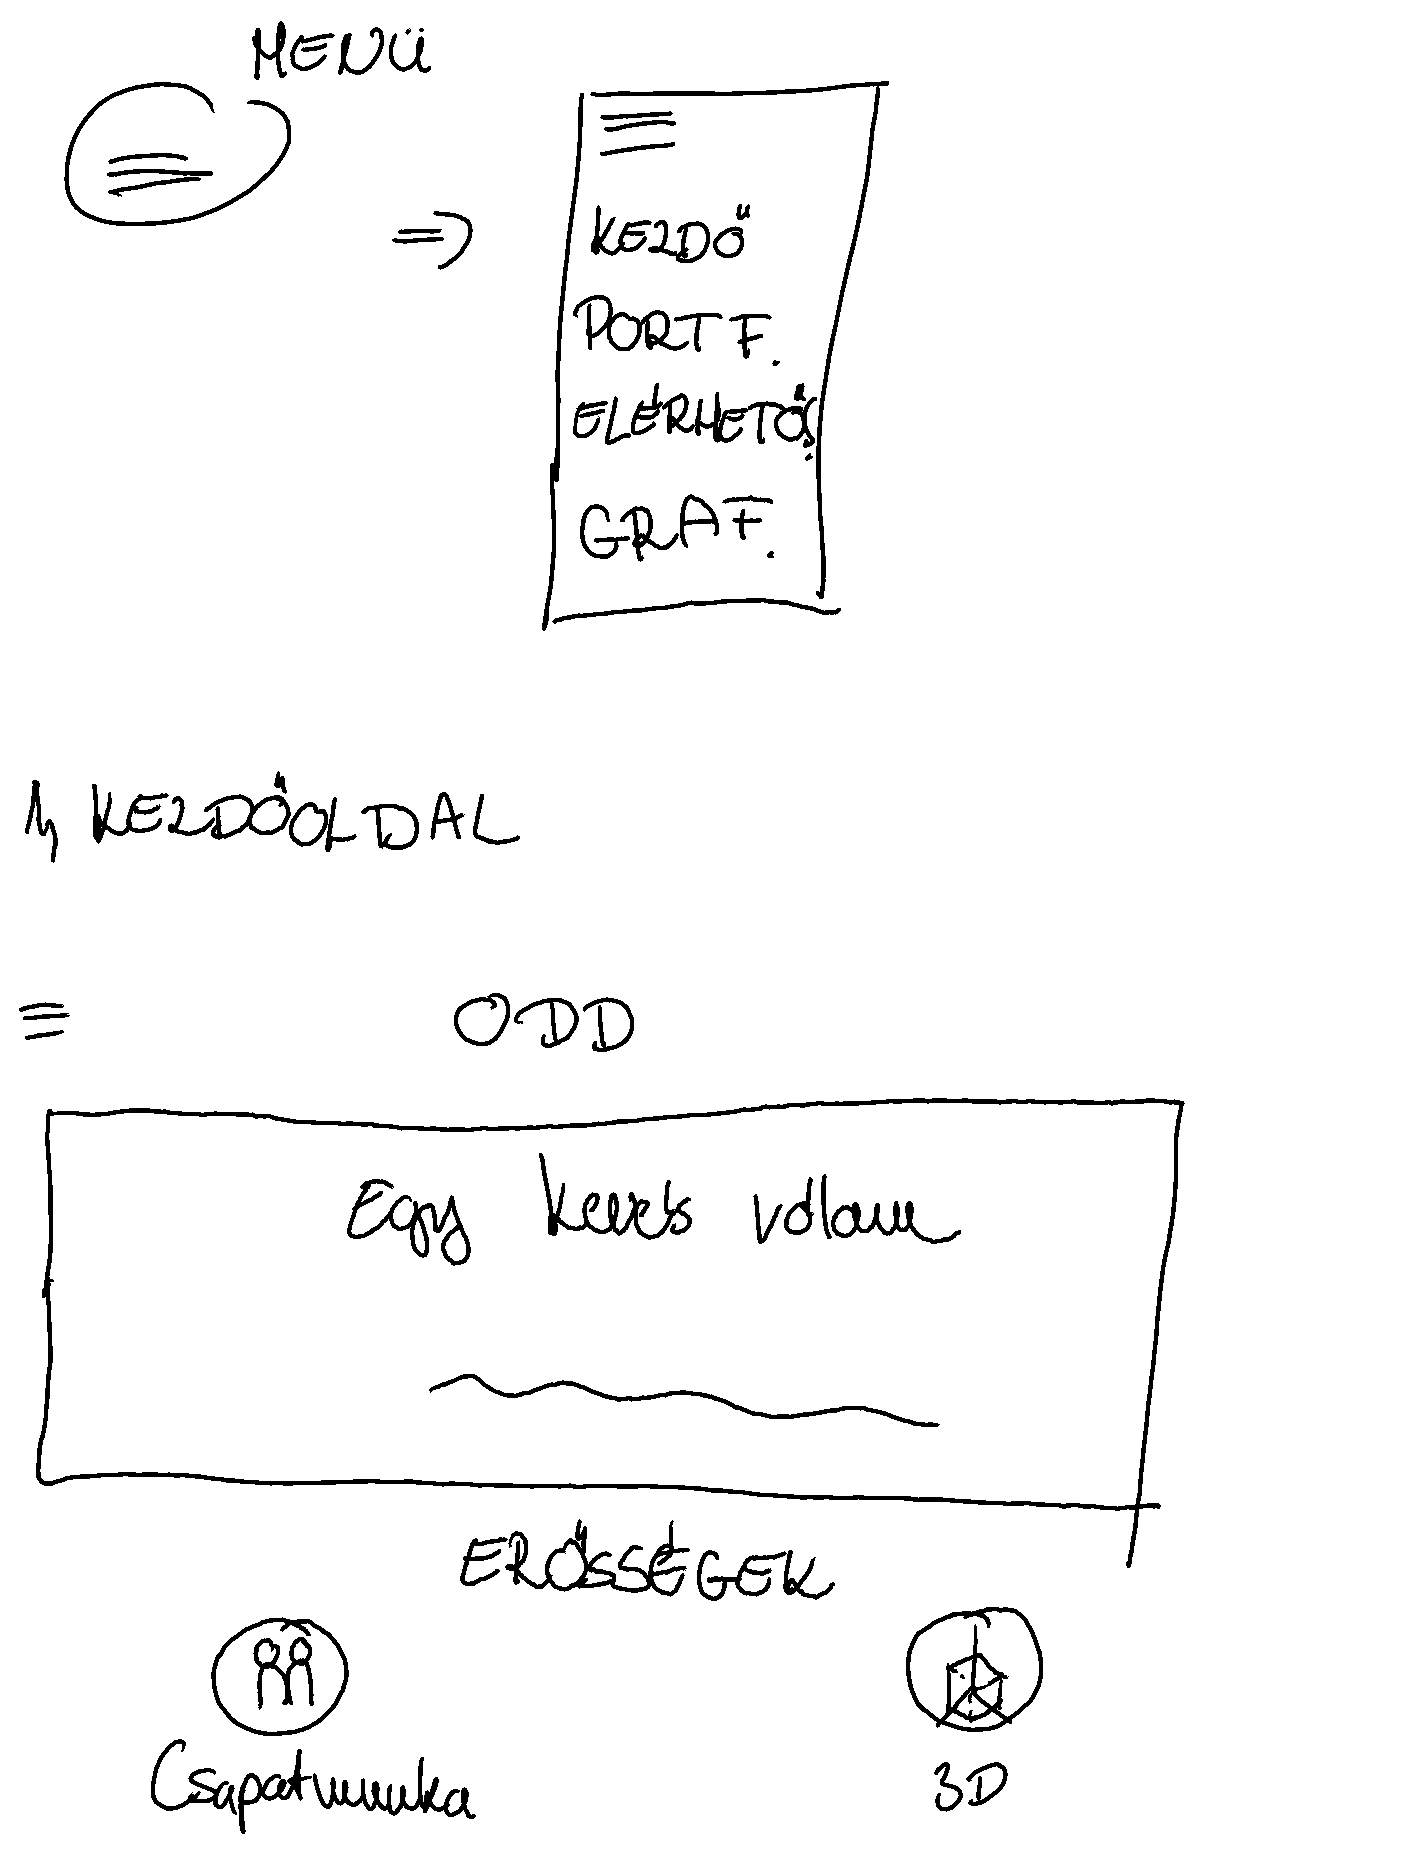 MENÜ
KEZDŐ
PORTF.
ELÉRHETŐS.
GRAF.
1, KEZDŐOLDAL
ODD
Egy kevés rólam
ERŐSSÉGEK
Csapatmunka
3D